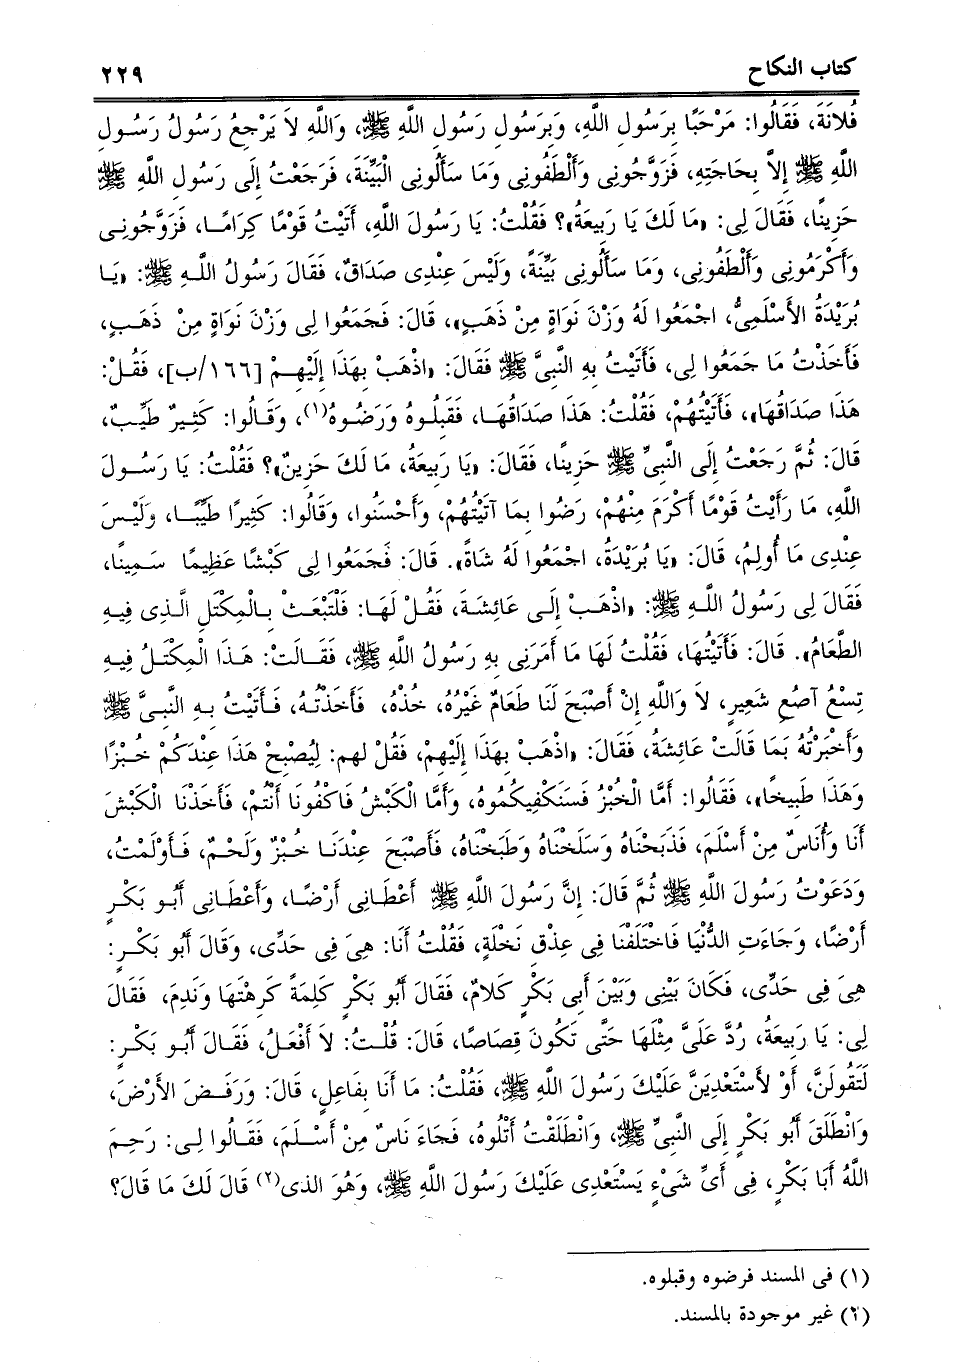 كتاب النكاح ٢٢٩
فُلاَنَةَ، فَقَالُوا: مَرْحَبًا بِرَسُولِ اللَّهِ، وَبِرَسُولِ رَسُولِ اللَّهِ ﷺ، وَاللَّهِ لاَ يَرْجِعُ رَسُولُ رَسُولِ
اللَّهِ ﷺ إِلاَّ بِحَاجَتِهِ، فَزَوَّجُونِى وَأَلْطَفُونِى وَمَا سَأَلُونِى الْبَيِّنَةَ، فَرَجَعْتُ إِلَى رَسُولِ اللَّهِ ﷺ
حَزِينًا، فَقَالَ لِى: «مَا لَكَ يَا رَبِيعَةُ»؟ فَقُلْتُ: يَا رَسُولَ اللَّهِ، أَتَيْتُ قَوْمًا كِرَامًا، فَزَوَّجُونِى
وَأَكْرَمُونِى وَأَلْطَفُونِى، وَمَا سَأَلُونِى بَيِّنَةً، وَلَيْسَ عِنْدِى صَدَاقٌ، فَقَالَ رَسُولُ اللَّهِ ﷺ: «يَا
بُرَيْدَةُ الأَسْلَمِىُّ، اجْمَعُوا لَهُ وَزْنَ نَوَاةٍ مِنْ ذَهَبٍ»، قَالَ: فَجَمَعُوا لِى وَزْنَ نَوَاةٍ مِنْ ذَهَبٍ،
فَأَخَذْتُ مَا جَمَعُوا لِى، فَأَتَيْتُ بِهِ النَّبِىَّ ﷺ فَقَالَ: «اذْهَبْ بِهَذَا إِلَيْهِمْ [١٦٦/ب]، فَقُلْ:
هَذَا صَدَاقُهَا»، فَأَتَيْتُهُمْ، فَقُلْتُ: هَذَا صَدَاقُهَا، فَقَبِلُوهُ وَرَضُوهُ(١)، وَقَالُوا: كَثِيرٌ طَيِّبٌ،
قَالَ: ثُمَّ رَجَعْتُ إِلَى النَّبِىِّ ﷺ حَزِينًا، فَقَالَ: «يَا رَبِيعَةُ، مَا لَكَ حَزِينٌ»؟ فَقُلْتُ: يَا رَسُولَ
اللَّهِ، مَا رَأَيْتُ قَوْمًا أَكْرَمَ مِنْهُمْ، رَضُوا بِمَا آتَيْتُهُمْ، وَأَحْسَنُوا، وَقَالُوا: كَثِيرًا طَيِّبًا، وَلَيْسَ
عِنْدِى مَا أُولِمُ، قَالَ: «يَا بُرَيْدَةُ، اجْمَعُوا لَهُ شَاةً». قَالَ: فَجَمَعُوا لِى كَبْشًا عَظِيمًا سَمِينًا،
فَقَالَ لِى رَسُولُ اللَّهِ ﷺ: «اذْهَبْ إِلَى عَائِشَةَ، فَقُلْ لَهَا: فَلْتَبْعَثْ بِالْمِكْتَلِ الَّذِى فِيهِ
الطَّعَامُ». قَالَ: فَأَتَيْتُهَا، فَقُلْتُ لَهَا مَا أَمَرَنِى بِهِ رَسُولُ اللَّهِ ﷺ، فَقَالَتْ: هَذَا الْمِكْتَلُ فِيهِ
تِسْعُ آصُعِ شَعِيرٍ، لاَ وَاللَّهِ إِنْ أَصْبَحَ لَنَا طَعَامٌ غَيْرُهُ، خُذْهُ، فَأَخَذْتُهُ، فَأَتَيْتُ بِهِ النَّبِىَّ ﷺ
وَأَخْبَرْتُهُ بِمَا قَالَتْ عَائِشَةُ، فَقَالَ: «اذْهَبْ بِهَذَا إِلَيْهِمْ، فَقُلْ لهم: لِيُصْبِحْ هَذَا عِنْدَكُمْ خُبْزًا
وَهَذَا طَبِيخًا»، فَقَالُوا: أَمَّا الْخُبْزُ فَسَنَكْفِيكُمُوهُ، وَأَمَّا الْكَبْشُ فَاكْفُونَا أَنْتُمْ، فَأَخَذْنَا الْكَبْشَ
أَنَا وَأُنَاسٌ مِنْ أَسْلَمَ، فَذَبَحْنَاهُ وَسَلَخْنَاهُ وَطَبَخْنَاهُ، فَأَصْبَحَ عِنْدَنَا خُبْزٌ وَلَحْمٌ، فَأَوْلَمْتُ،
وَدَعَوْتُ رَسُولَ اللَّهِ ﷺ ثُمَّ قَالَ: إِنَّ رَسُولَ اللَّهِ ﷺ أَعْطَانِى أَرْضًا، وَأَعْطَانِى أَبُو بَكْرٍ
أَرْضًا، وَجَاءَتِ الدُّنْيَا فَاخْتَلَفْنَا فِى عِذْقِ نَخْلَةٍ، فَقُلْتُ أَنَا: هِىَ فِى حَدِّى، وَقَالَ أَبُو بَكْرٍ:
هِىَ فِى حَدِّى، فَكَانَ بَيْنِى وَبَيْنَ أَبِى بَكْرٍ كَلاَمٌ، فَقَالَ أَبُو بَكْرٍ كَلِمَةً كَرِهْتَهَا وَنَدِمَ، فَقَالَ
لِى: يَا رَبِيعَةُ، رُدَّ عَلَىَّ مِثْلَهَا حَتَّى تَكُونَ قِصَاصًا، قَالَ: قُلْتُ: لاَ أَفْعَلُ، فَقَالَ أَبُو بَكْرٍ:
لَتَقُولَنَّ، أَوْ لأَسْتَعْدِيَنَّ عَلَيْكَ رَسُولَ اللَّهِ ﷺ، فَقُلْتُ: مَا أَنَا بِفَاعِلٍ، قَالَ: وَرَفَضَ الأَرْضَ،
وَانْطَلَقَ أَبُو بَكْرٍ إِلَى النَّبِىِّ ﷺ، وَانْطَلَقْتُ أَتْلُوهُ، فَجَاءَ نَاسٌ مِنْ أَسْلَمَ، فَقَالُوا لِى: رَحِمَ
اللَّهُ أَبَا بَكْرٍ، فِى أَىِّ شَىْءٍ يَسْتَعْدِى عَلَيْكَ رَسُولَ اللَّهِ ﷺ، وَهُوَ الذى(٢) قَالَ لَكَ مَا قَالَ؟
(١) فى المسند فرضوه وقبلوه.
(٢) غير موجودة بالمسند.